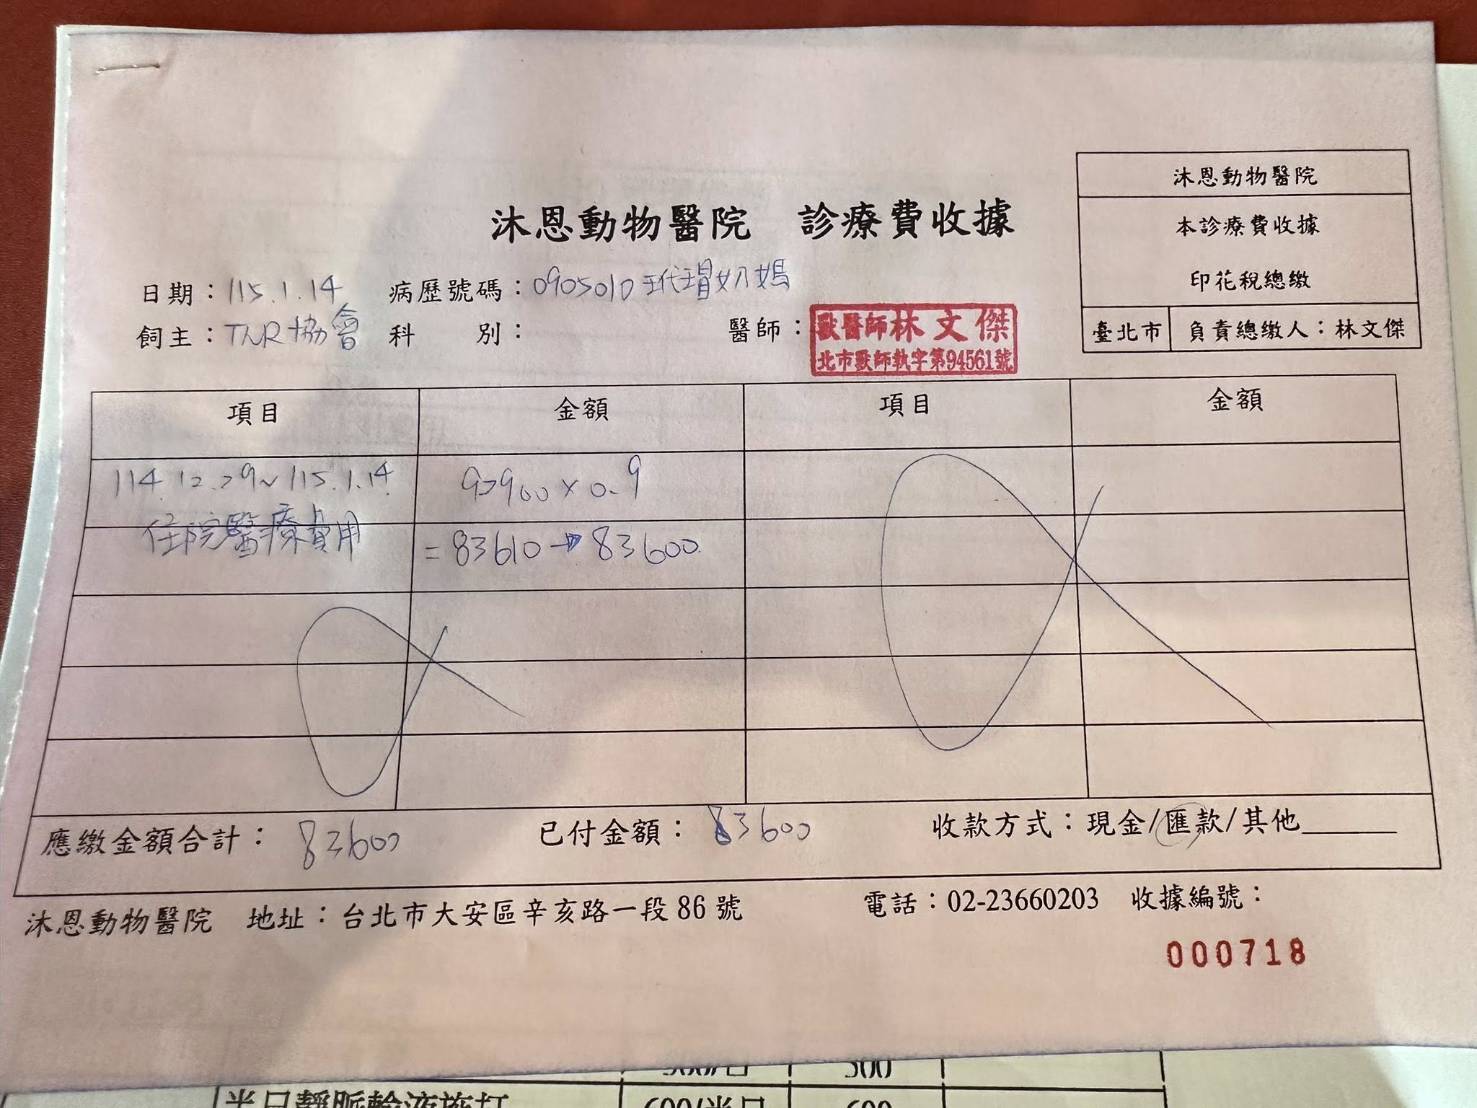 沐恩動物醫院
本診療費收據
印花稅總繳
臺北市 負責總繳人：林文傑
沐恩動物醫院 診療費收據
日期：115.1.14 病歷號碼：0905010 玳瑁奶媽
飼主：TNR協會 科 別： 醫師：
獸醫師林文傑
北市獸師執字第94561號
項目 金額 項目 金額
114.12.29~115.1.14 92900×0.9
住院醫療費用 =83610→83600
應繳金額合計：83600 已付金額：83600 收款方式：現金/匯款/其他
沐恩動物醫院 地址：台北市大安區辛亥路一段86號 電話：02-23660203 收據編號：
000718
500
半日靜脈輸液施打 600/半日 600